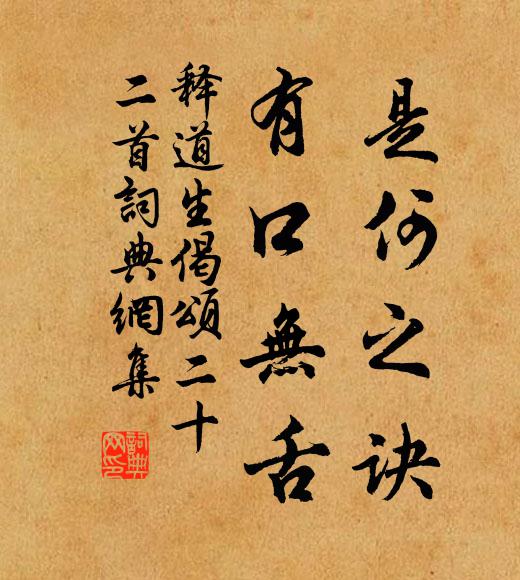 是何之訣
有口無舌
释道生偈頌二十
二首詞典網集
詞典網印